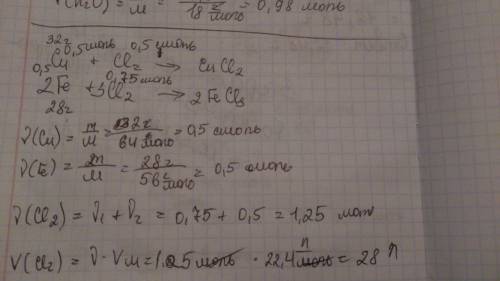 ν(H₂O) = m/M = /18 г/моль = 0,98 моль
32г 0,5 моль 0,5 моль
0,5 Cu + Cl₂ → CuCl₂
0,75 моль
2Fe + 3Cl₂ → 2FeCl₃
28г
ν(Cu) = m/M = 32г/64 г/моль = 0,5 моль
ν(Fe) = m/M = 28г/56 г/моль = 0,5 моль
ν(Cl₂) = ν₁ + ν₂ = 0,75 + 0,5 = 1,25 моль
V(Cl₂) = ν · Vм = 1,25 моль · 22,4 л/моль = 28 л